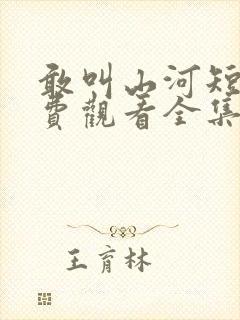 敢叫山河短
费觀看全集
王育林